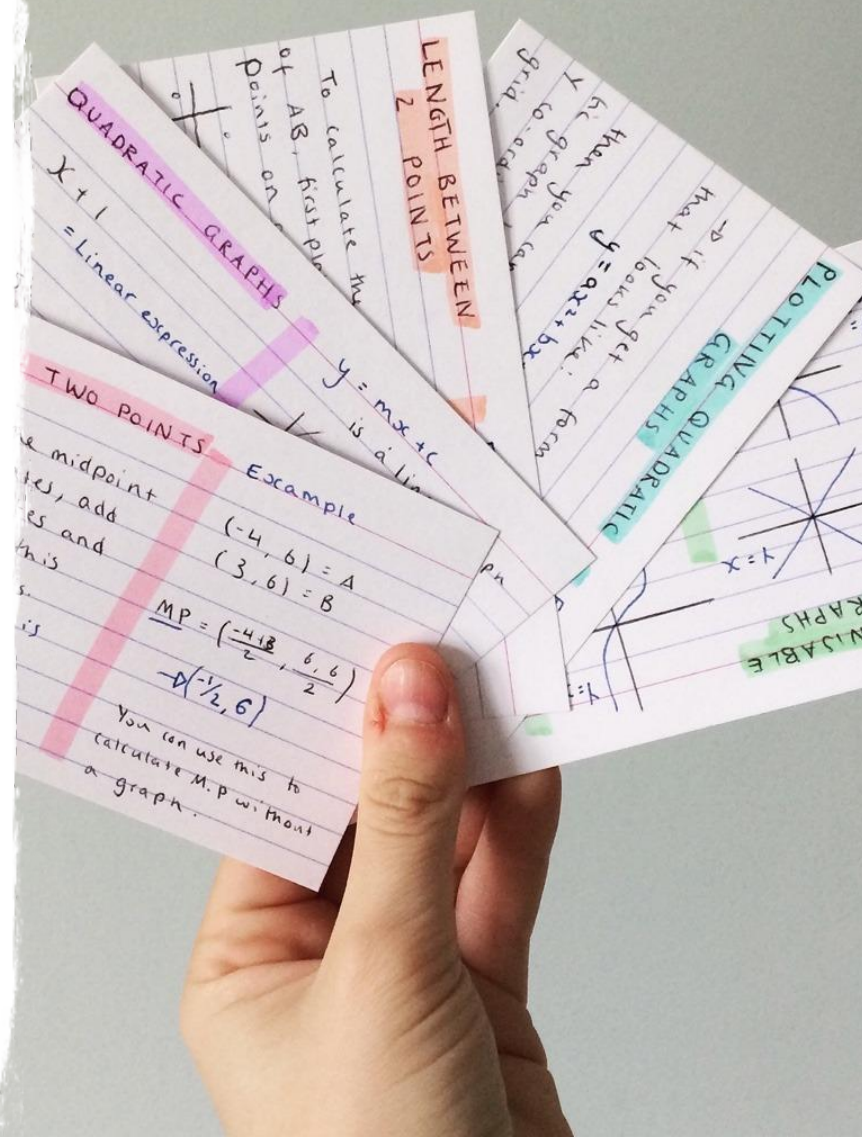 TWO POINTS
e midpoint
tes, add
es and
this
s.
is
Example
(-4, 6) = A
(3, 6) = B
MP = (-4+3/2, 6,6/2)
→(-1/2, 6)
You can use this to
calculate M.P without
a graph.
QUADRATIC GRAPHS
x + 1
= Linear expression
y = mx + c
is a lin
LENGTH BETWEEN
2 POINTS
To calculate the
of AB, first pla
points on
PLOTTING QUADRATIC
GRAPHS
→ if you get a form
that looks like:
y = ax² + bx
then you can
grid.
ph
RAPHS
y = x
y =